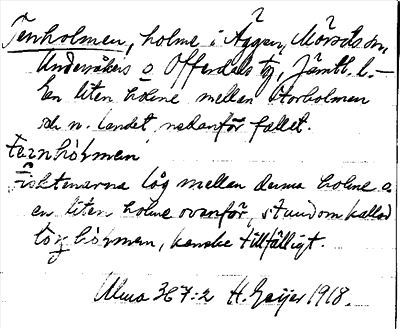 Tenholmen, holme i Äggen, Mörsdsm,
Undersåkers o Offerdals tg, Jämtl. l. –
En liten holme mellan Storholmen
och n. landet, nedanför fallet.
Fisktenarna låg mellan denna holme o
en liten holme ovanför, stundom kallad
kanske tillfälligt.
Ulma 367:2 H. Geijer 1918.